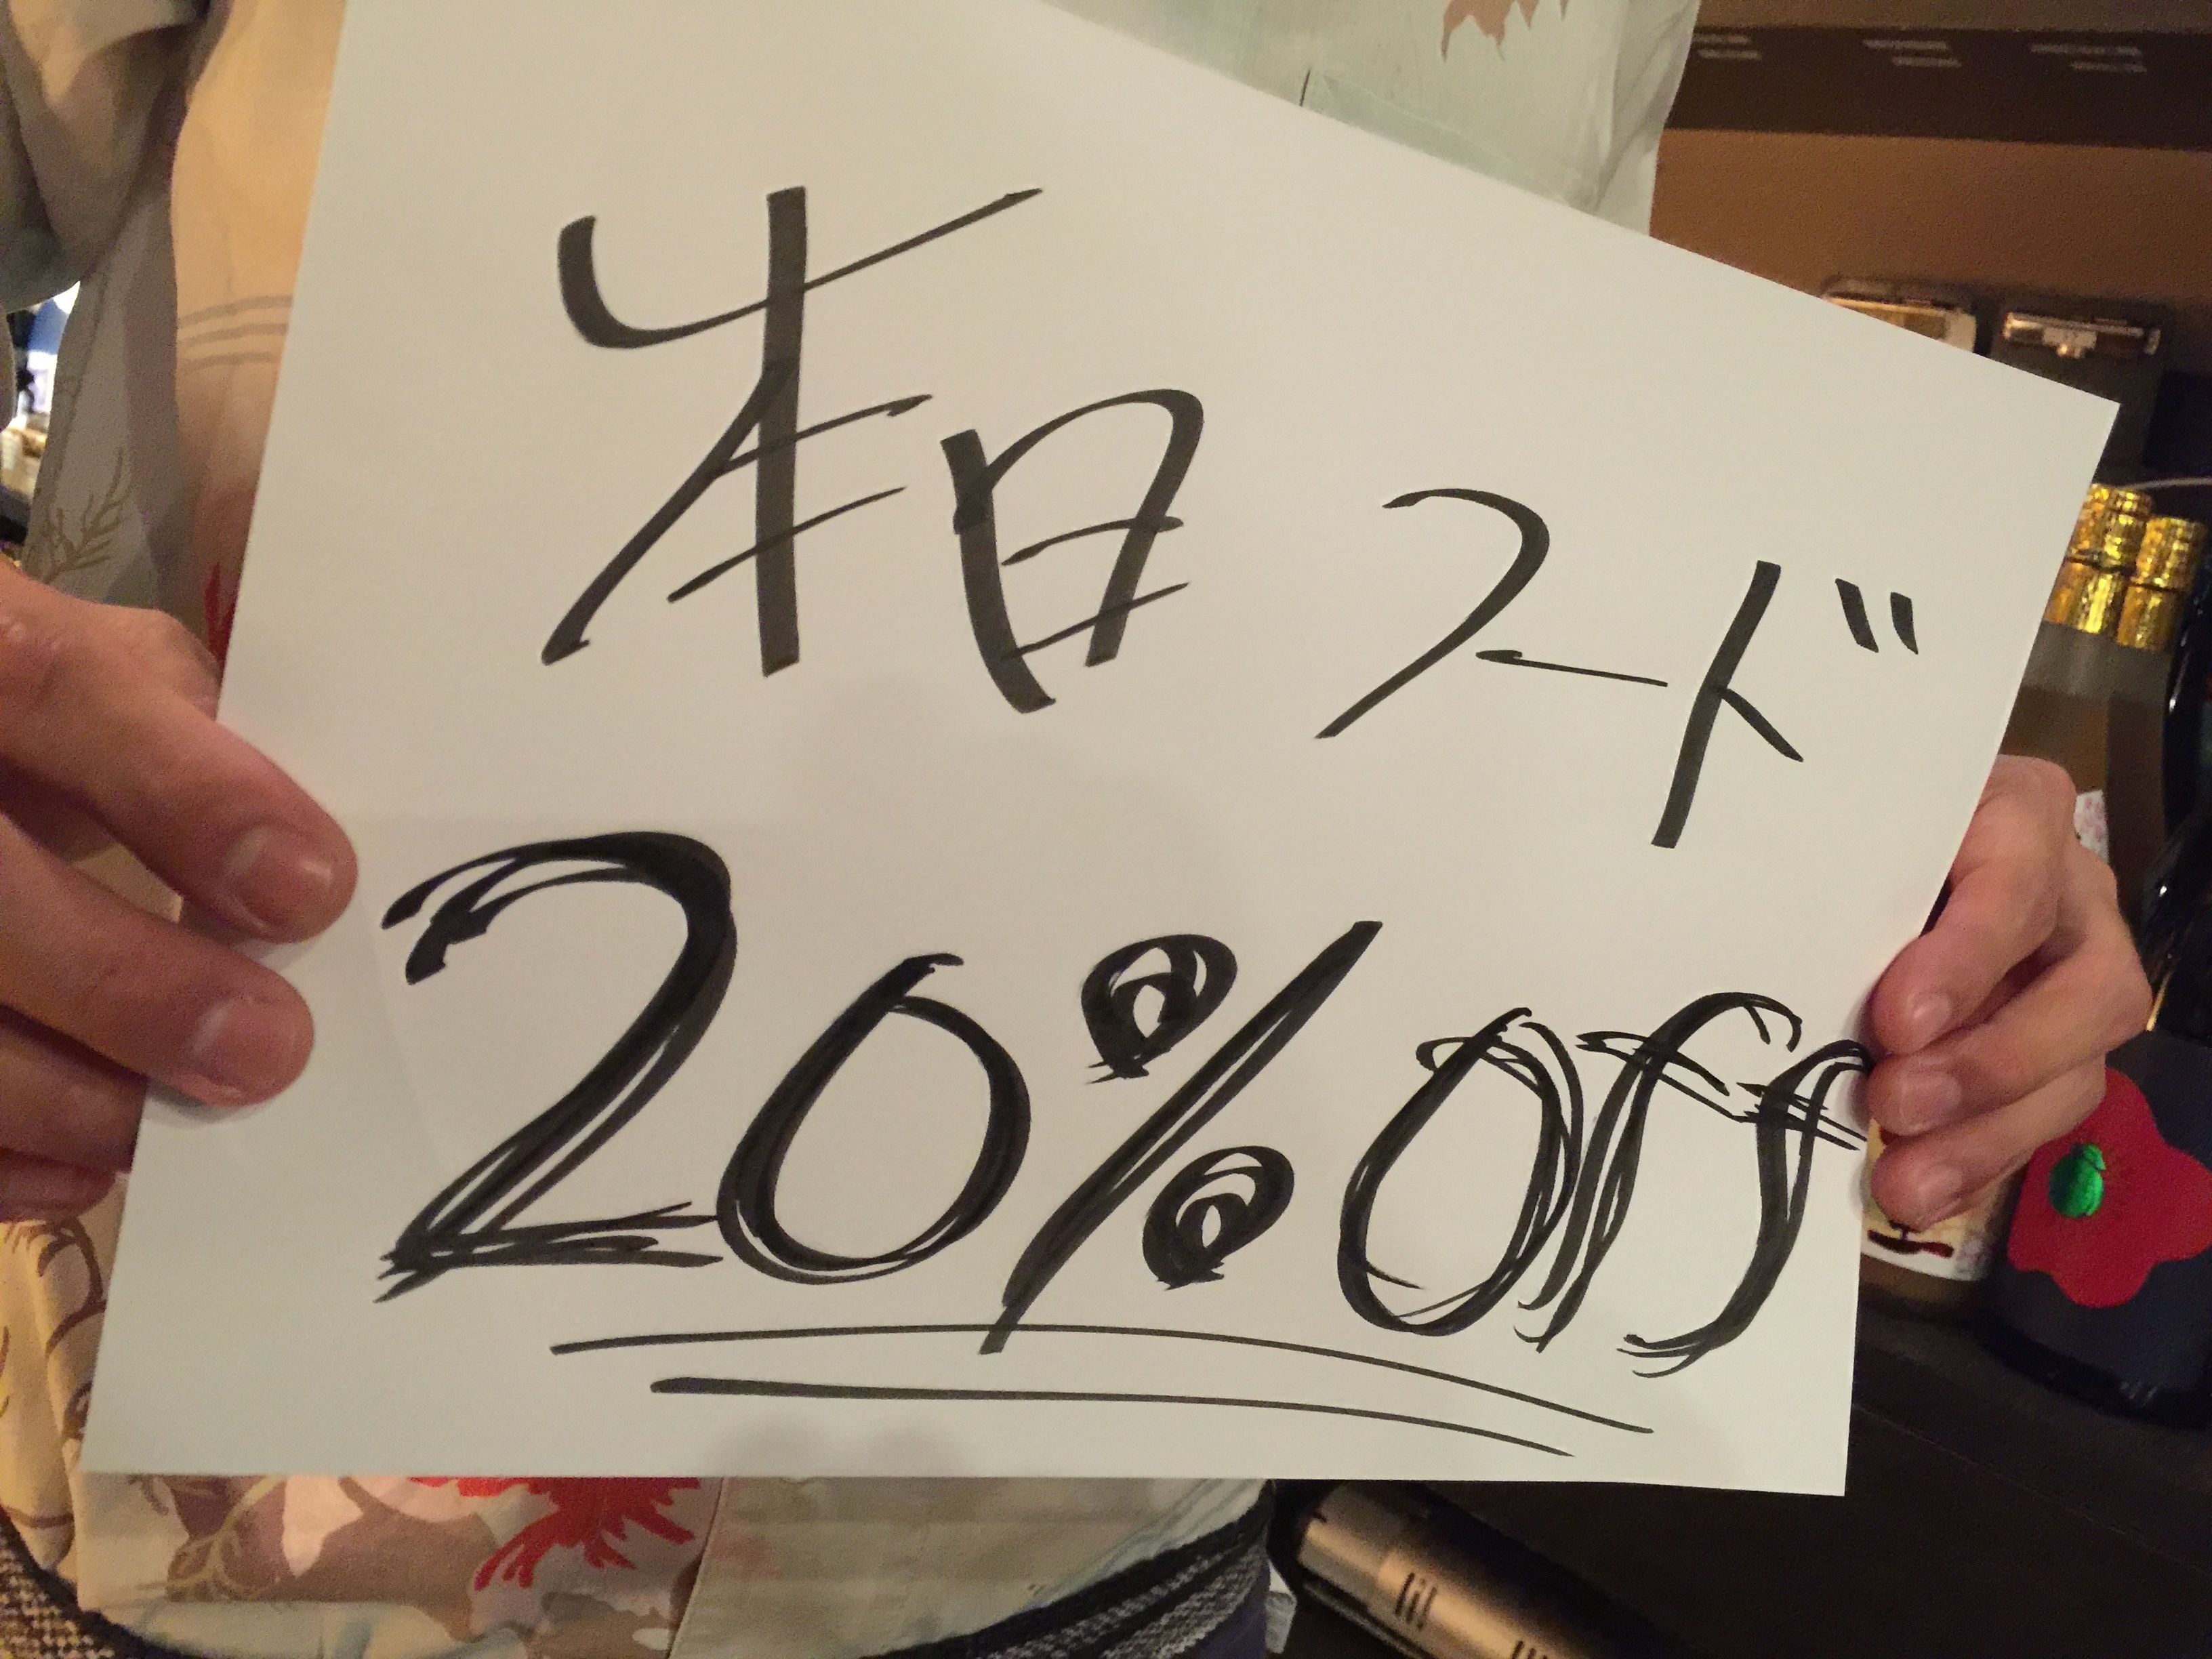 本日フード
20%off